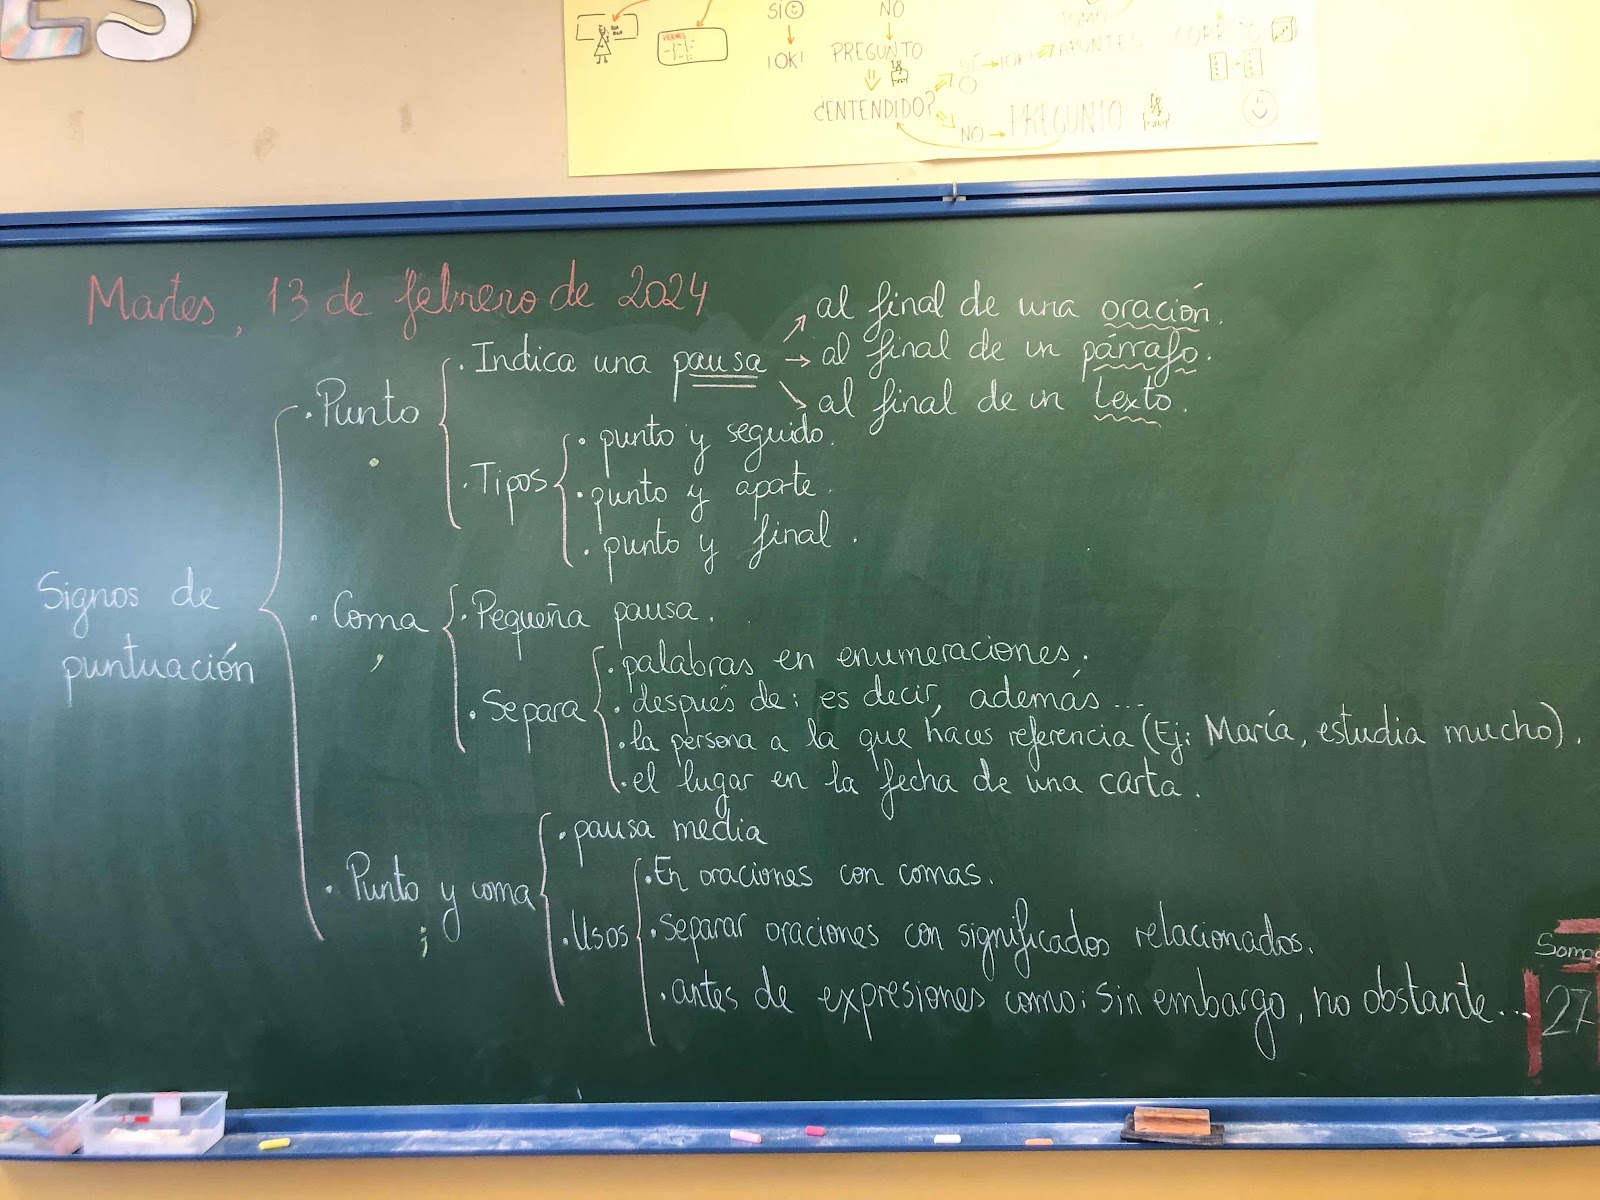 ES
SÍ
NO
¡OK!
PREGUNTO
¿ENTENDIDO?
NO → PREGUNTO
APUNTES
Martes, 13 de febrero de 2024
Signos de
puntuación
· Punto
.
· Indica una pausa
→ al final de una oración.
→ al final de un párrafo.
→ al final de un texto.
· Tipos
· punto y seguido.
· punto y aparte.
· punto y final.
· Coma
,
· Pequeña pausa.
· Separa
· palabras en enumeraciones.
· después de: es decir, además...
· la persona a la que haces referencia (Ej: María, estudia mucho).
· el lugar en la fecha de una carta.
· Punto y coma
;
· pausa media
· Usos
· En oraciones con comas.
· Separar oraciones con significados relacionados.
· antes de expresiones como: sin embargo, no obstante...
Somos
27